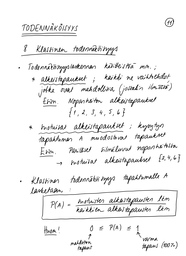 11
TODENNÄKÖISYYS
§ Klassinen todennäköisyys
• Todennäköisyyslaskennan käsitteitä mm. :
* alkeistapaukset ; kaikki ne vaihtoehdot
jotka ovat mahdollisia (jossakin ilmiössä)
Esim Nopanheiton alkeistapaukset
{1, 2, 3, 4, 5, 6}
* suotuisat alkeistapaukset ; kysytyn
tapahtuman A muodostavat tapaukset
Esim Parilliset silmäluvut nopanheitossa
→ suotuisat alkeistapaukset {2,4,6}
• Klassinen todennäköisyys tapahtumalle A
lasketaan :
P(A) = suotuisten alkeistapausten lkm
kaikkien alkeistapausten lkm
Huom! 0 ≤ P(A) ≤ 1
mahdoton
tapaus
varma
tapaus (100%)